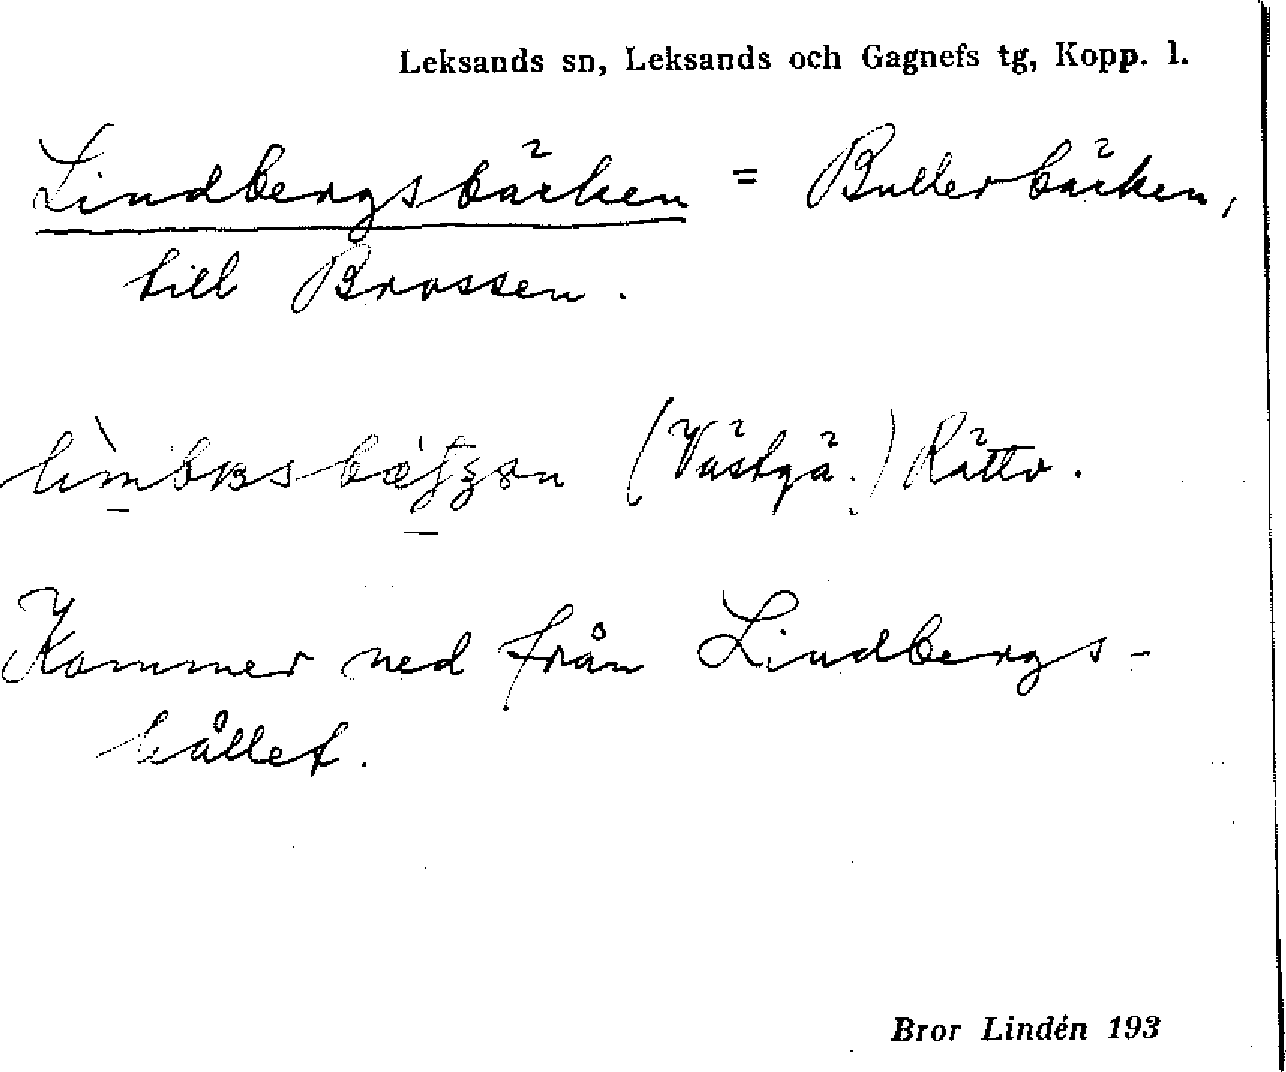 Leksands sn, Leksands och Gagnefs tg, Kopp. l.
Lindbergsbäcken = Bullerbäcken,
till Brossen.
(Västgä.) Rättv.
Kommer ned från Lindbergs-
hållet.
Bror Lindén 193